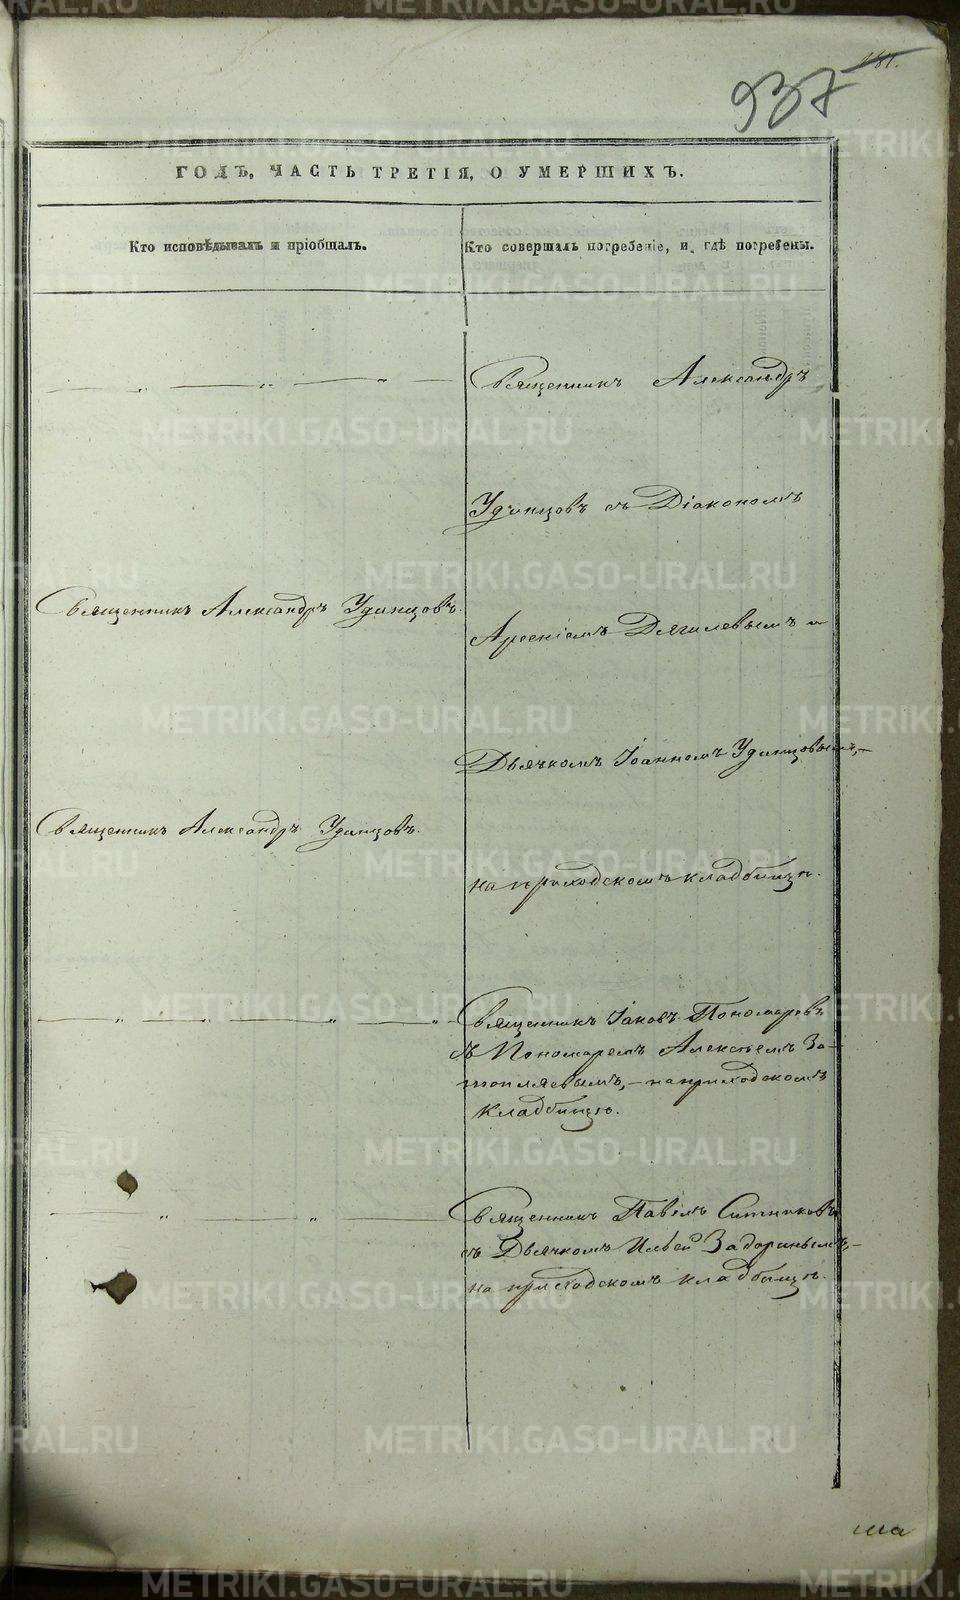 181.
937
ГОДЪ, ЧАСТЬ ТРЕТІЯ, О УМЕРШИХЪ.
Кто исповѣдывалъ и пріобщалъ.
Кто совершалъ погребеніе, и гдѣ погребены.
Священникъ Александръ
Удинцовъ съ Діакономъ
Священникъ Александръ Удинцовъ.
Арсеніемъ Дягилевымъ и
Дьячкомъ Іоанномъ Удинцовымъ,
Священникъ Александръ Удинцовъ.
на приходскомъ кладбищѣ.
Священникъ Іаковъ Пономаревъ
съ Пономаремъ Алексѣемъ За-
топляевымъ, – на приходскомъ
кладбищѣ.
Священникъ Павелъ Ситниковъ
съ Дьячкомъ Ильей Задоринымъ, –
на приходскомъ кладбищѣ.
METRIKI.GASO-URAL.RU